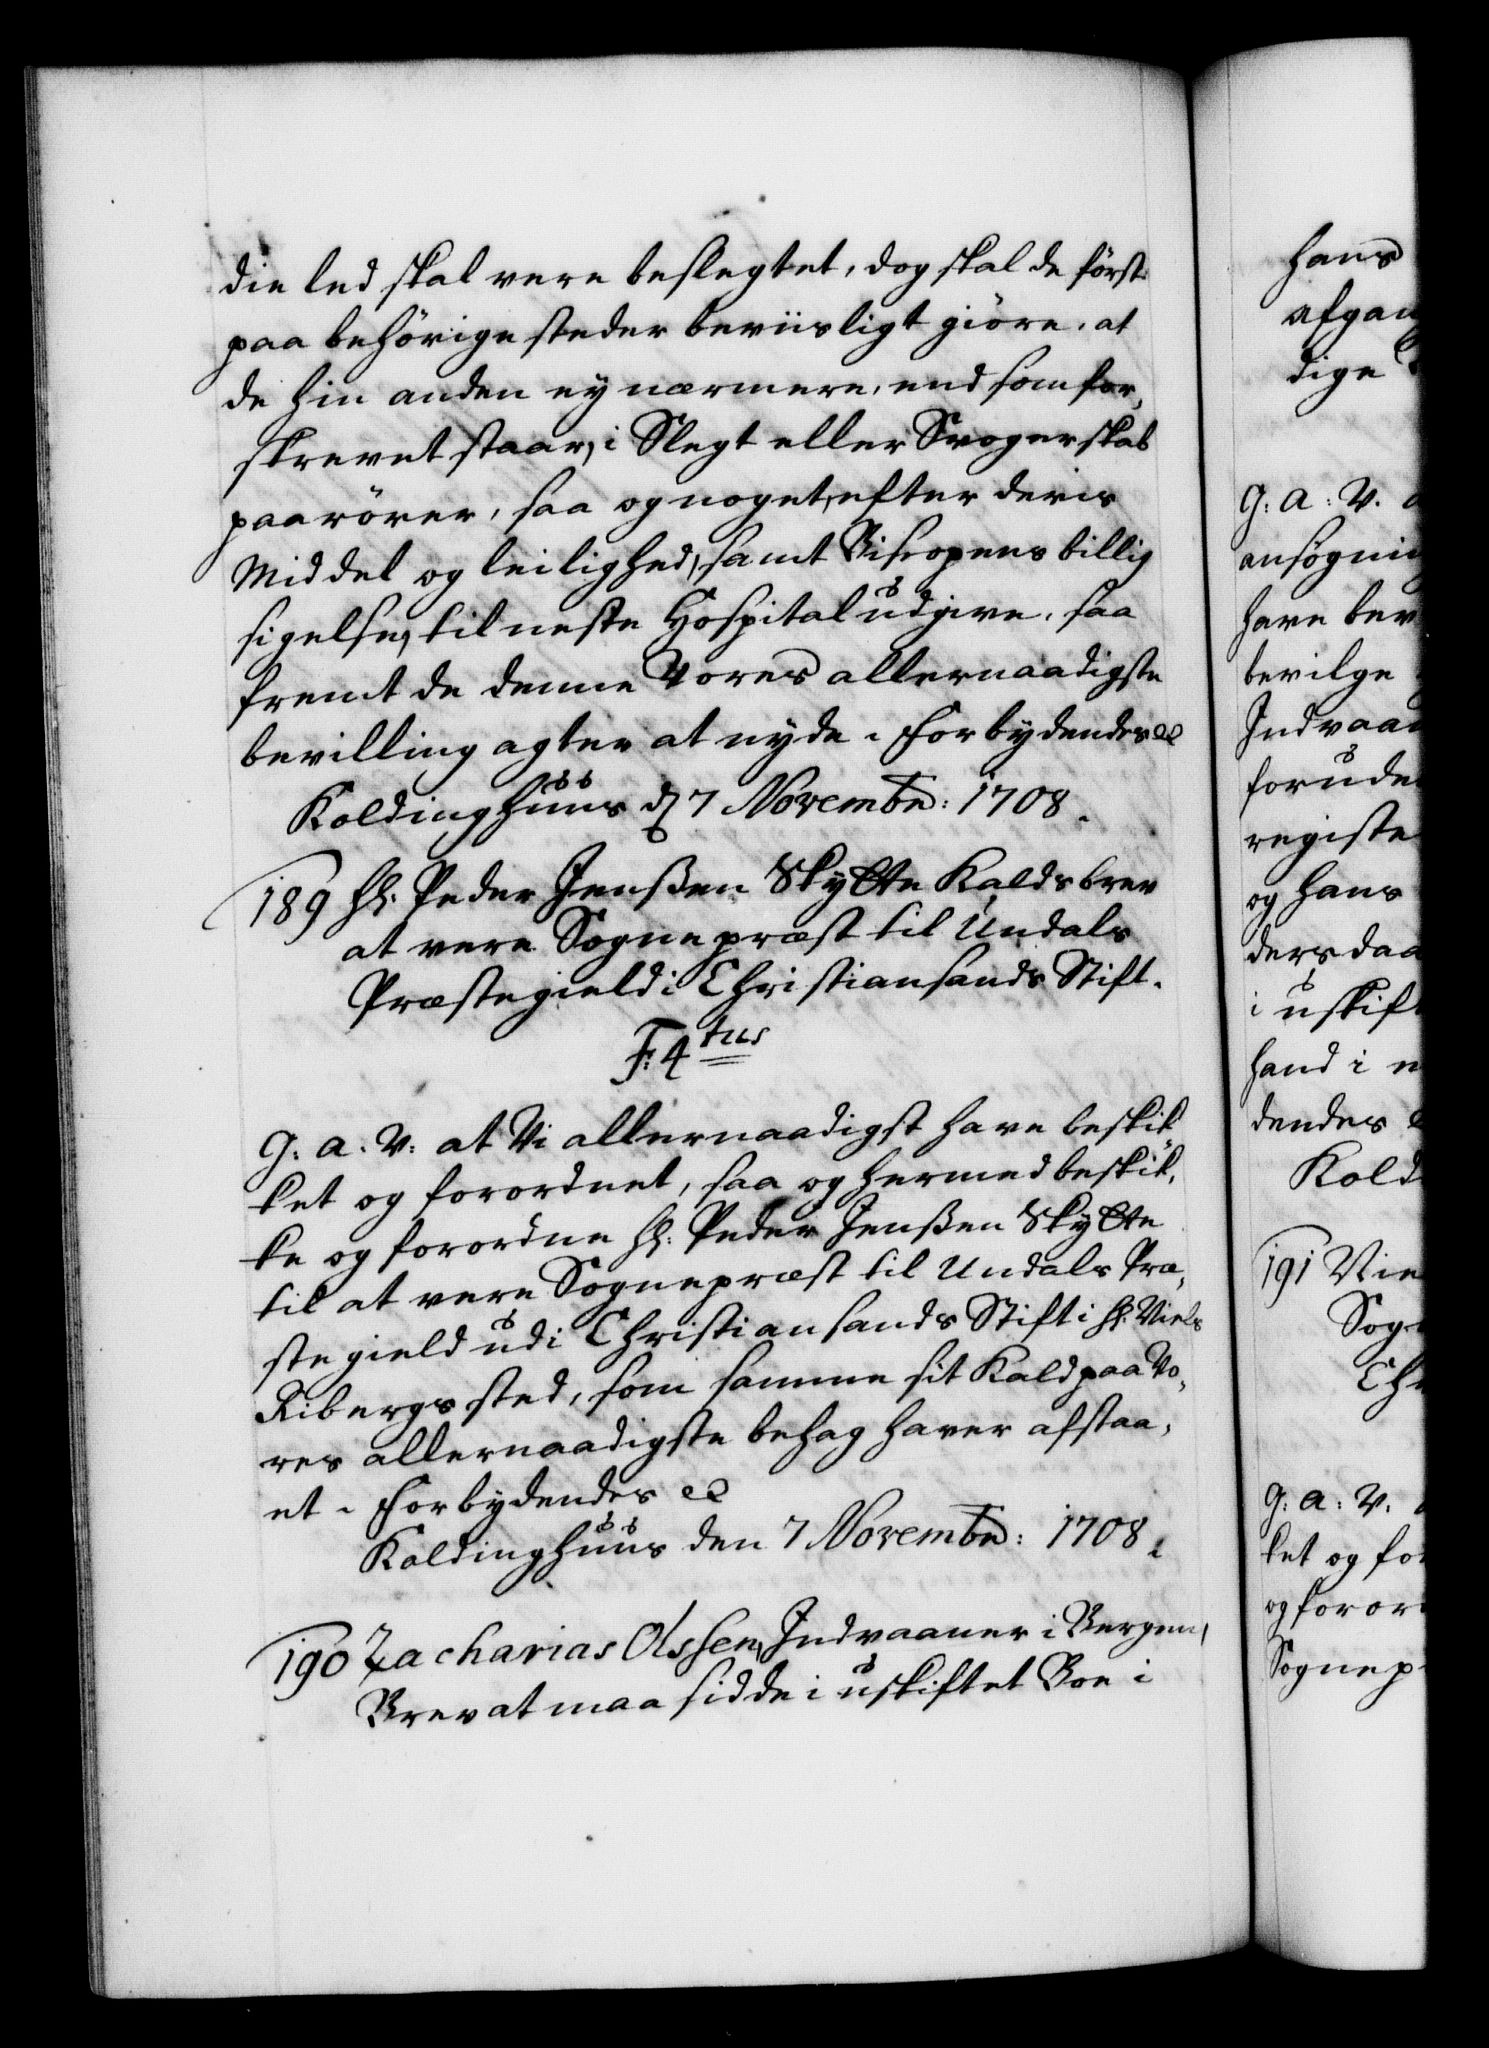 die led skal vere beslegtet, dog skal de först
paa behörige steder beviisligt giöre, at
de hin anden ey nærmere, end som for,
skrevet staar, i Slegt eller Svogerskab
paarörer, saa og noget, efter deris
Middel og leilighed, samt Biscopens billig
sigelse, til neste Hospital udgive, saa
fremt de denne Vores allernaadigste
bevilling agter at nyde. Forbydendes &c
Koldinghuus d 7 Novembr: 1708.
189 Hr: Peder Jenssen Skytte Kaldsbrev
at vere Sognepræst til Undals
Præstegield i Christiansands Stift.
F: 4tus
G: A: V: at Vi allernaadigst have beskik
ket og forordnet, saa og hermed beskik,
ke og forordne Hr: Peder Jenssen Skytte
til at vere Sognepræst til Undals Præ,
stegield udi Christiansands Stift i Hr: Niels
Ribergs sted, som samme sit Kald paa Vo,
res allernaadigste behag haver afstaa,
et. Forbydendes &c
Koldinghuus den 7 Novembr: 1708.
190 Zacharias Olssen, Indvaaner i Bergen,
Brev at maa sidde i uskiftet Boe i
hans
afgan
dige
G: A: V.
ansögnin
have bev
bevilge
Indvaan
forude
registe
og hans
ders daa
i uskift
hand i
dendes
Kold
191 Nie
Sog
Chr
G: A: V.
ket og for
og foror
Sognep